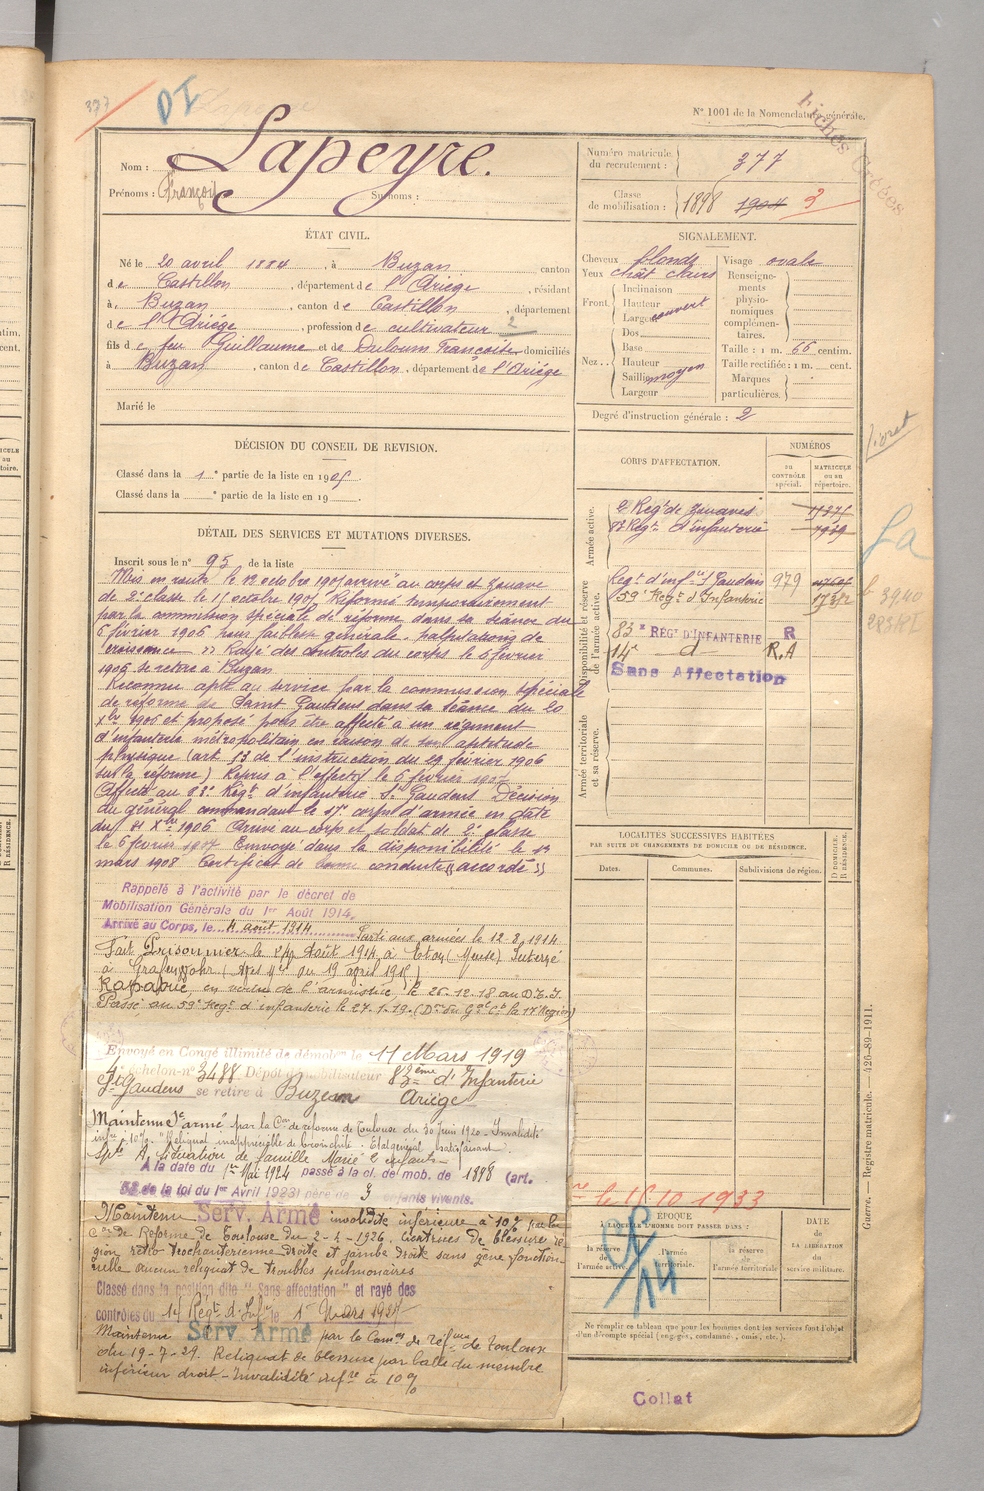 377
DI
N° 1001 de la Nomenclature générale.
Fiches Créées
Nom : Lapeyre.
Prénoms : François Surnoms :
Numéro matricule du recrutement : 377
Classe de mobilisation : 1898 1904 3
ÉTAT CIVIL.
Né le 20 avril 1884, à Buzan, canton
de Castillon, département de l'Ariège, résidant
à Buzan, canton de Castillon, département
de l'Ariège, profession de cultivateur 2
fils de feu Guillaume et de Duloum Françoise domiciliés
à Buzan, canton de Castillon, département de l'Ariège
Marié le
SIGNALEMENT.
Cheveux blonds
Yeux chât clairs
Front.
Inclinaison
Hauteur
Largeur
couvert
Nez..
Dos
Base
Hauteur
Saillie moyen
Largeur
Visage ovale
Renseignements physionomiques complémentaires.
Taille : 1 m. 66 centim.
Taille rectifiée : 1 m. cent.
Marques particulières.
Degré d'instruction générale : 2
livret
DÉCISION DU CONSEIL DE REVISION.
Classé dans la 1e partie de la liste en 1905
Classé dans la e partie de la liste en 19
CORPS D'AFFECTATION.
NUMÉROS
au CONTRÔLE spécial.
MATRICULE ou au répertoire.
Armée active.
2 Régt de Zouaves
83 Régt d'infanterie
Disponibilité et réserve de l'armée active.
Regt d'infie St Gaudens 979
59e Regt d'Infanterie
83e RÉGt D'INFANTERIE R
14e d R.A
Sans Affectation
Armée territoriale et sa réserve.
La
DÉTAIL DES SERVICES ET MUTATIONS DIVERSES.
Inscrit sous le n° 95 de la liste
Mis en route le 12 octobre 1905 arrivé au corps et zouave
de 2e classe le 15 octobre 1905 Réformé temporairement
par la commission spéciale de réforme dans sa séance du
5 février 1906 pour faiblesse générale. palpitations de
croissance » Rayé des contrôles du corps le 5 février
1906 se retire à Buzan
Reconnu apte au service par la commission spéciale
de réforme de Saint Gaudens dans sa séance du 20
Xbre 1906 et proposé pour être affecté à un régiment
d'infanterie métropolitain en raison de son aptitude
physique (art. 13 de l'instruction du 29 février 1906
sur la réforme) Repris à l'effectif le 6 février 1907
Affecté au 83e Régt d'infanterie St Gaudens Décision
du général commandant le 17e corps d'armée en date
du 21 Xbre 1906 Arrivé au corps et soldat de 2e classe
le 6 février 1907 Envoyé dans la disponibilité le 13
mars 1908 Certificat de bonne conduite « accordé »
Rappelé à l'activité par le décret de
Mobilisation Générale du 1er Août 1914,
Arrivé au Corps, le 4 août 1914 Parti aux armées le 12-8-1914
Fait Prisonnier le 24 Août 1914 à Eton (Meuse) Interné
à Grafenwohr
Rapatrié, en vertu de l'armistice le 26.12.18 au D.T.I.
Passé au 59e Regt d'infanterie le 27.1.19.
Envoyé en Congé illimité de démobon le 11 Mars 1919
4e échelon-n° 3488 Dépôt démobilisateur 83ème d'Infanterie
St Gaudens se retire à Buzan Ariège
Maintenu Sce armé par la Con de réforme de Toulouse du 30 Juin 1920 - Invalidité
infre à 10%. "Reliquat inappréciable de bronchite. Etat général satisfaisant.
Spte A, situation de famille Marié 2 enfants -
A la date du 1er Mai 1924 passé à la cl. de mob. de 1898 (art.
58 de la loi du 1er Avril 1923) père de 3 enfants vivants.
Maintenu Serv. Armé invalidité inférieure à 10% par la
Con de Réforme de Toulouse du 2-4-1926. Cicatrices de blessure région
rétro trochantérienne droite et jambe droite sans gêne fonctionnelle
Aucun reliquat de troubles pulmonaires
Classé dans la position dite " Sans-affectation " et rayé des
contrôles du 14 Régt d'Infie le 1er Mars 1927
Maintenu Serv. Armé par la Comon de réfme de Toulouse
du 19-7-29. Reliquat de blessure par balle du membre
inférieur droit - Invalidité infre à 10%
LOCALITÉS SUCCESSIVES HABITÉES
PAR SUITE DE CHANGEMENTS DE DOMICILE OU DE RÉSIDENCE.
Dates.
Communes.
Subdivisions de région.
D DOMICILE. R RÉSIDENCE.
le 15 10 1933
ÉPOQUE
À LAQUELLE L'HOMME DOIT PASSER DANS :
la réserve de l'armée active.
l'armée territoriale.
la réserve de l'armée territoriale
DATE DE LA LIBÉRATION du service militaire.
Ne remplir ce tableau que pour les hommes dont les services font l'objet
d'un décompte spécial (engagés, condamnés, omis, etc.).
Guerre. — Registre matricule. — 426-89-1911.
Collat